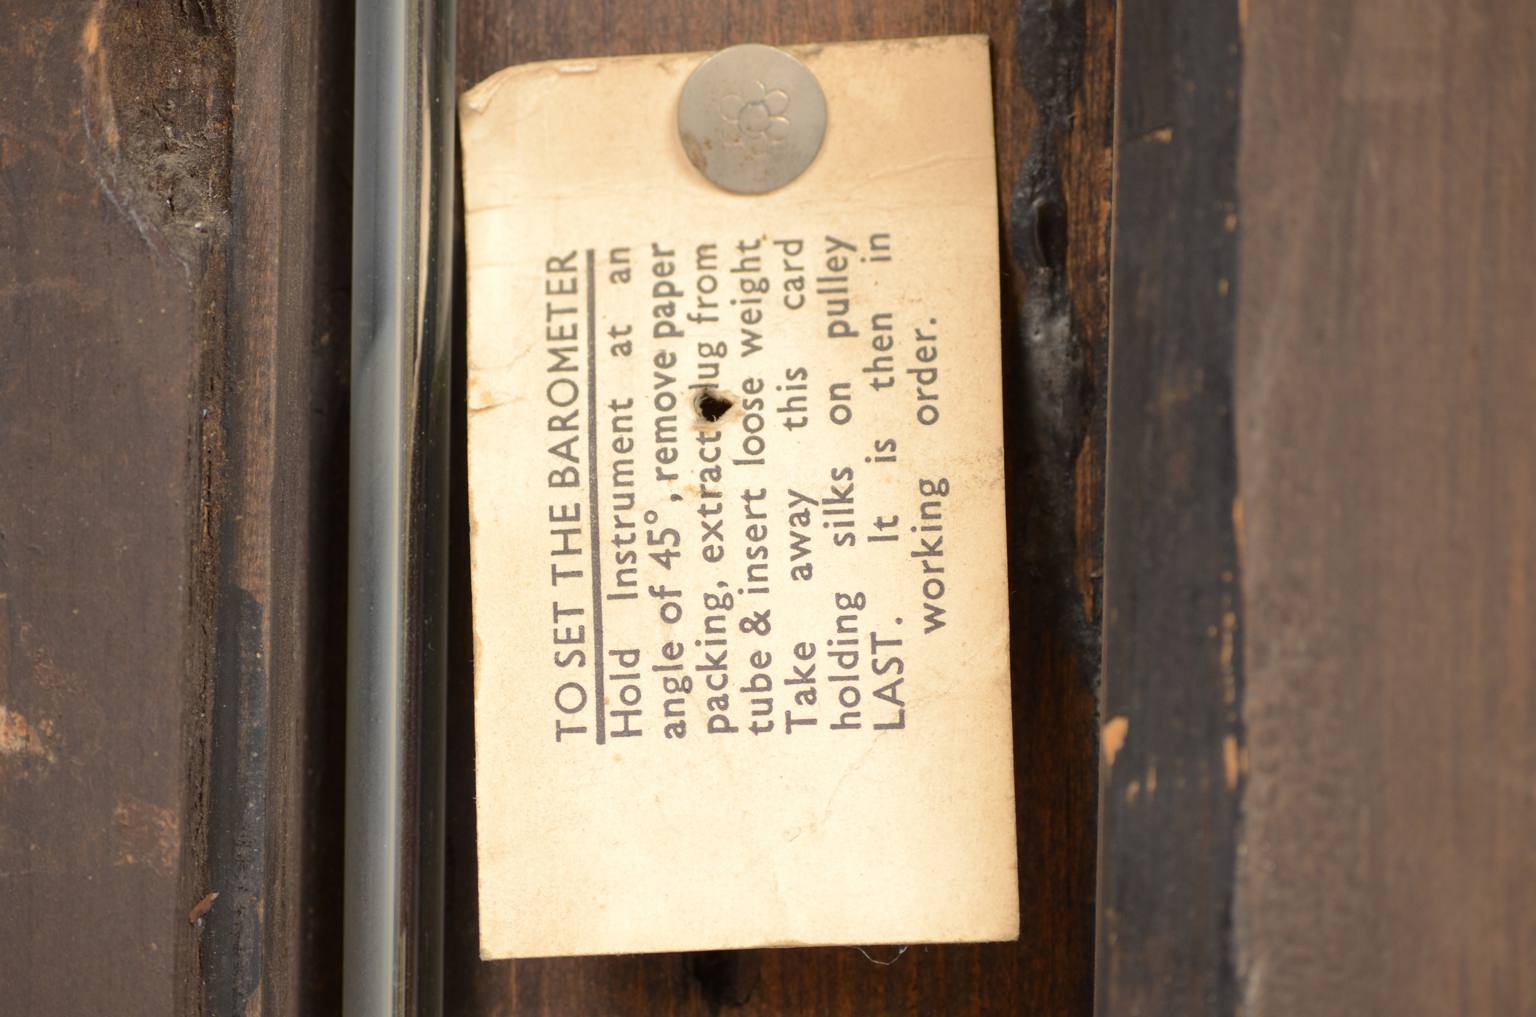 TO SET THE BAROMETER
Hold Instrument at an
angle of 45°, remove paper
packing, extract lug from
tube & insert loose weight.
Take away this card
holding silks on pulley
LAST. It is then in
working order.